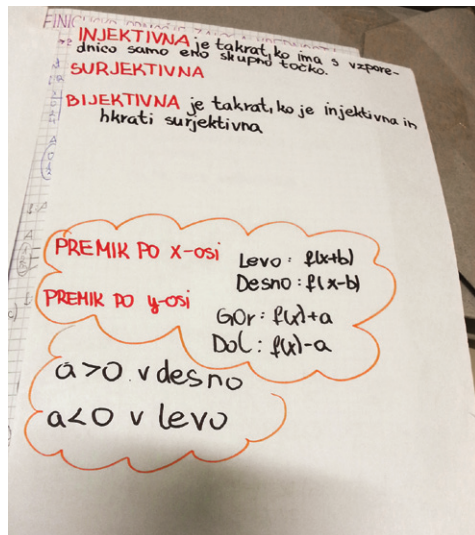 INJEKTIVNA je takrat, ko ima s vzpore-
dnico samo eno skupno točko.
SURJEKTIVNA
BIJEKTIVNA je takrat, ko je injektivna in
hkrati surjektivna
PREMIK PO X-osi
Levo: f(x+b)
Desno: f(x-b)
PREMIK PO y-osi
GOr: f(x)+a
DoL: f(x)-a
a>0 v desno
a<0 v levo